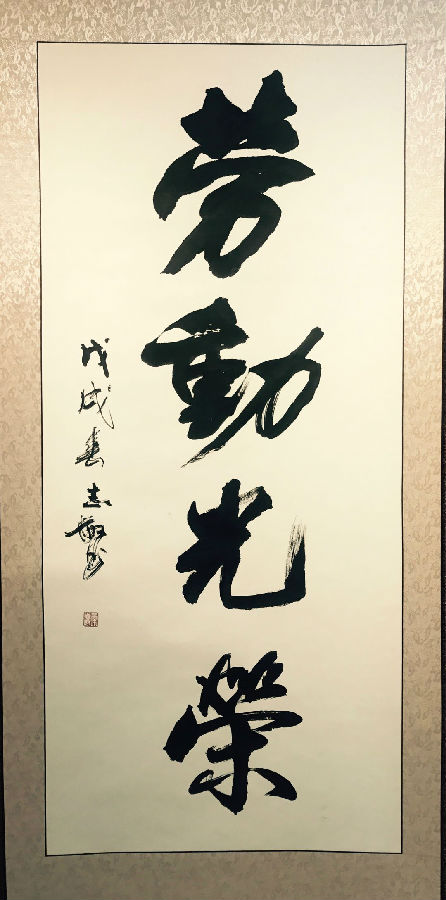 劳動光榮
戊戌春志敏书